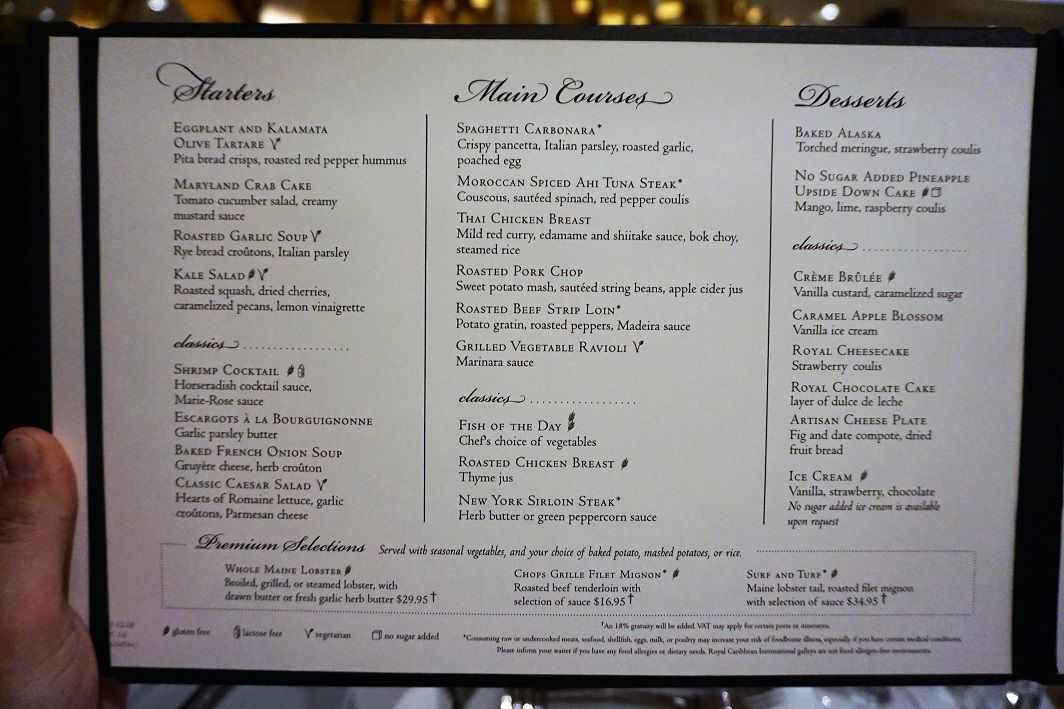 Starters
EGGPLANT AND KALAMATA
OLIVE TARTARE
Pita bread crisps, roasted red pepper hummus
MARYLAND CRAB CAKE
Tomato cucumber salad, creamy
mustard sauce
ROASTED GARLIC SOUP
Rye bread croûtons, Italian parsley
KALE SALAD
Roasted squash, dried cherries,
caramelized pecans, lemon vinaigrette
classics
SHRIMP COCKTAIL
Horseradish cocktail sauce,
Marie-Rose sauce
ESCARGOTS À LA BOURGUIGNONNE
Garlic parsley butter
BAKED FRENCH ONION SOUP
Gruyère cheese, herb croûton
CLASSIC CAESAR SALAD
Hearts of Romaine lettuce, garlic
croûtons, Parmesan cheese
Main Courses
SPAGHETTI CARBONARA*
Crispy pancetta, Italian parsley, roasted garlic,
poached egg
MOROCCAN SPICED AHI TUNA STEAK*
Couscous, sautéed spinach, red pepper coulis
THAI CHICKEN BREAST
Mild red curry, edamame and shiitake sauce, bok choy,
steamed rice
ROASTED PORK CHOP
Sweet potato mash, sautéed string beans, apple cider jus
ROASTED BEEF STRIP LOIN*
Potato gratin, roasted peppers, Madeira sauce
GRILLED VEGETABLE RAVIOLI
Marinara sauce
classics
FISH OF THE DAY
Chef's choice of vegetables
ROASTED CHICKEN BREAST
Thyme jus
NEW YORK SIRLOIN STEAK*
Herb butter or green peppercorn sauce
Desserts
BAKED ALASKA
Torched meringue, strawberry coulis
NO SUGAR ADDED PINEAPPLE
UPSIDE DOWN CAKE
Mango, lime, raspberry coulis
classics
CRÈME BRÛLÉE
Vanilla custard, caramelized sugar
CARAMEL APPLE BLOSSOM
Vanilla ice cream
ROYAL CHEESECAKE
Strawberry coulis
ROYAL CHOCOLATE CAKE
layer of dulce de leche
ARTISAN CHEESE PLATE
Fig and date compote, dried
fruit bread
ICE CREAM
Vanilla, strawberry, chocolate
No sugar added ice cream is available
upon request
Premium Selections Served with seasonal vegetables, and your choice of baked potato, mashed potatoes, or rice.
WHOLE MAINE LOBSTER
Broiled, grilled, or steamed lobster, with
drawn butter or fresh garlic herb butter $29.95†
CHOPS GRILLE FILET MIGNON*
Roasted beef tenderloin with
selection of sauce $16.95†
SURF AND TURF*
Maine lobster tail, roasted filet mignon
with selection of sauce $34.95†
gluten free lactose free vegetarian no sugar added
†An 18% gratuity will be added. VAT may apply for certain ports or itineraries.
*Consuming raw or undercooked meats, seafood, shellfish, eggs, milk, or poultry may increase your risk of foodborne illness, especially if you have certain medical conditions.
Please inform your waiter if you have any food allergies or dietary needs. Royal Caribbean International galleys are not food allergen-free environments.